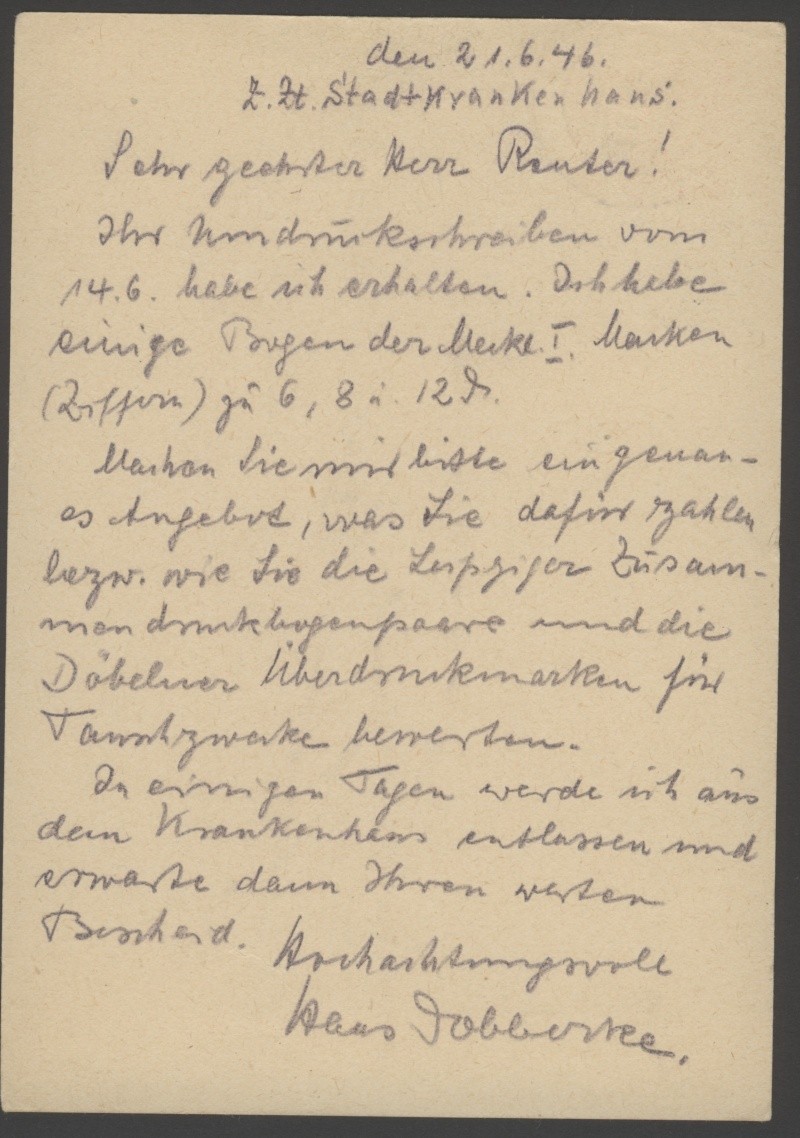 den 21.6.46.
Z.Zt. Stadtkrankenhaus.
Sehr geehrter Herr Reuter!
Ihr Umdruckschreiben vom
14.6. habe ich erhalten. Ich habe
einige Bogen der Meckl. I. Marken
(Ziffern) zu 6, 8 u. 12 Pf.
Machen Sie mir bitte ein genau-
es Angebot, was Sie dafür zahlen
bezw. wie Sie die Leipziger Zusam-
mendruckbogenpaare und die
Döbelner Überdruckmarken für
Tauschzwecke bewerten.
In einigen Tagen werde ich aus
dem Krankenhaus entlassen und
erwarte dann Ihren werten
Bescheid.
Hochachtungsvoll
Hans Dobberke.